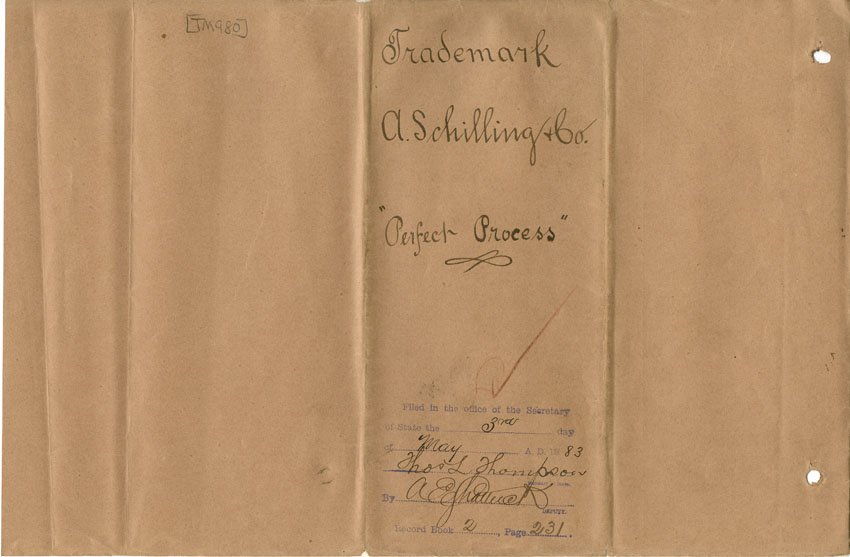 [TM980]
Trademark
A. Schilling & Co.
"Perfect Process"
Filed in the office of the Secretary
of State the 3rd day
of May A.D. 1883
Thos L Thompson
By A E Shattuck
DEPUTY.
Record Book 2, Page 231.